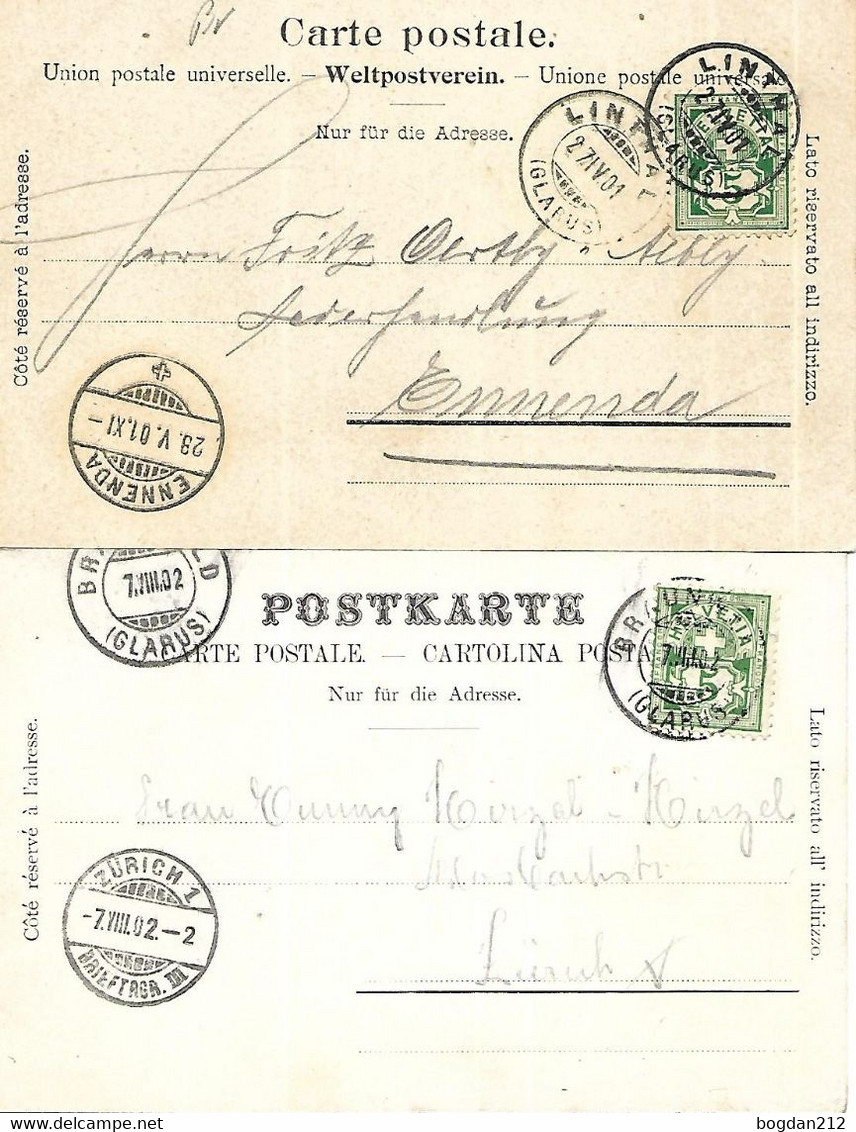 Carte postale.
Union postale universelle. — Weltpostverein. — Unione postale universale
Nur für die Adresse.
Côté réservé à l'adresse.
Lato riservato all indirizzo.
LINTHAL
27 IV 01
(GLARUS)
LINTHAL
27 IV 01
(GLARUS)
HELVETIA
5
Herrn Fritz Oertly Aebly
Lederhandlung
Ennenda
28. V. 01. XI –
ENNENDA
7. VIII. 02
(GLARUS)
POSTKARTE
CARTE POSTALE. — CARTOLINA POSTA
Nur für die Adresse.
Côté réservé à l'adresse.
Lato riservato all' indirizzo.
HELVETIA
FRANCO
7. VIII. 02
(GLARUS)
Frau Hirzel - Hirzel
Zürich
ZÜRICH 1
-7. VIII. 02. – 2
BRIEFTRGR. III
bogdan212